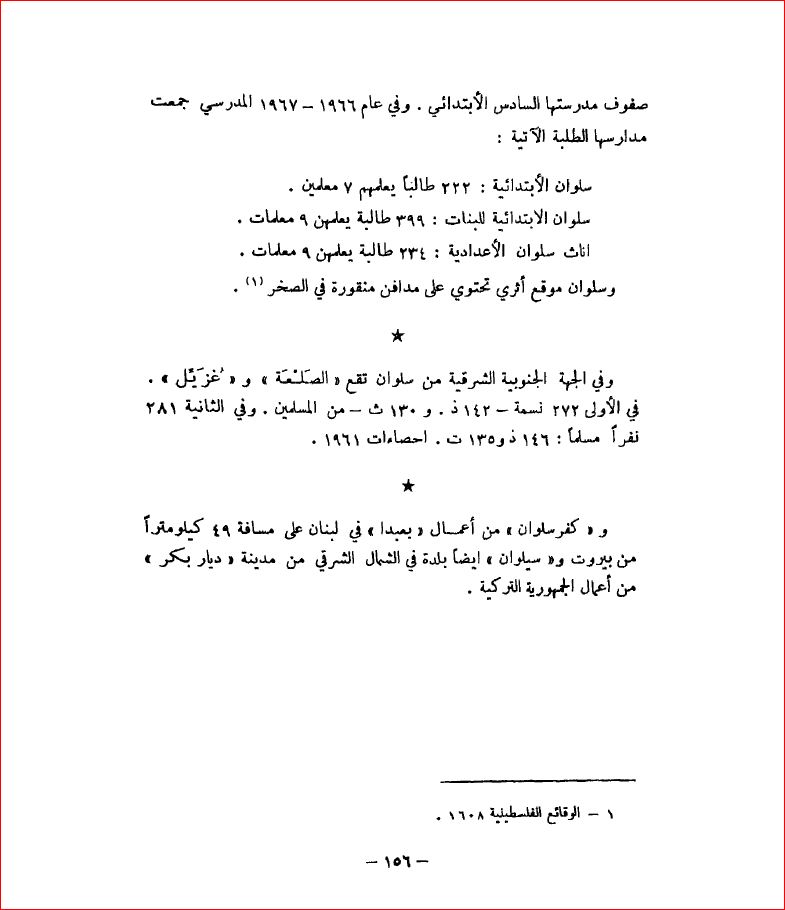 صفوف مدرستها السادس الأبتدائي . وفي عام ١٩٦٦ – ١٩٦٧ المدرسي جمعت
مدارسها الطلبة الآتية :
سلوان الأبتدائية : ٢٢٢ طالباً يعلمهم ٧ معلمين .
سلوان الابتدائية للبنات : ٣٩٩ طالبة يعلمهن ٩ معلمات .
اناث سلوان الأعدادية : ٢٣٤ طالبة يعلمهن ٩ معلمات .
وسلوان موقع أثري تحتوي على مدافن منقورة في الصخر (١) .
★
وفي الجهة الجنوبية الشرقية من سلوان تقع « الصَلْعَة » و « غُزَيّل » .
في الأولى ٢٧٢ نسمة – ١٤٢ ذ . و ١٣٠ ث – من المسلمين . وفي الثانية ٢٨١
نفراً مسلماً : ١٤٦ ذ و١٣٥ ت . احصاءات ١٩٦١ .
★
و « كفرسلوان » من أعمال « بعبدا » في لبنان على مسافة ٤٩ كيلومتراً
من بيروت و« سيلوان » ايضاً بلدة في الشمال الشرقي من مدينة « ديار بكر »
من أعمال الجمهورية التركية .
١ – الوقائع الفلسطينية ١٦٠٨ .
– ١٥٦ –